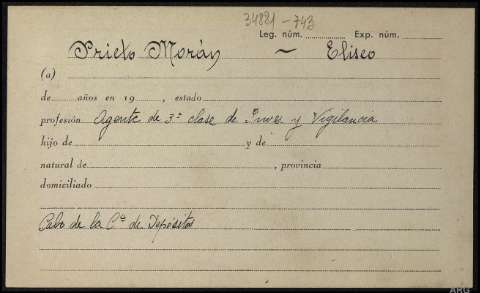 34881-743
Leg. núm. Exp. núm.
Prieto Morán ~ Eliseo
(a)
de años en 19 , estado
profesión Agente de 3ª clase de Inves y Vigilancia
hijo de y de
natural de , provincia
domiciliado
Cabo de la Cª de Depósitos
ARG